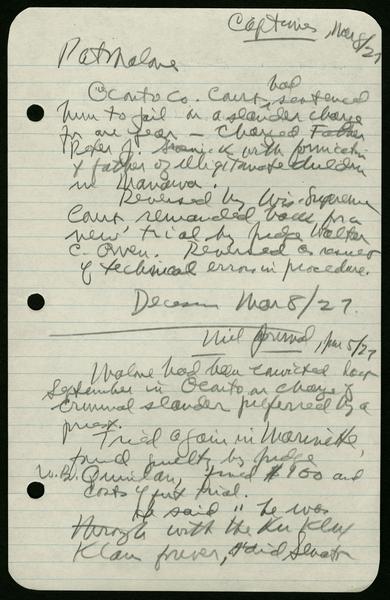 Captimes, Mar 8/27
Pat Malone
Oconto Co. Court had sentenced
him to jail on a slander charge
for one year — Charged Father
Peter J. with fornication
& father of illegitimate children
in Manawa.
Reversed by Wis. Supreme
Court remanded back for a
new trial by Judge Walter
C. Owen. Reversed
of technical errors in procedure.
Decision Mar 8/27.
Mil Journal, 5/27
Malone had been convicted last
September in Oconto on charge of
criminal slander preferred by a
priest.
Tried again in Marinette,
found guilty, by Judge
W.B. Quinlan, fined $900 and
costs of first trial.
He said "he was
through with the Ku Klux
Klan forever," & did Senator